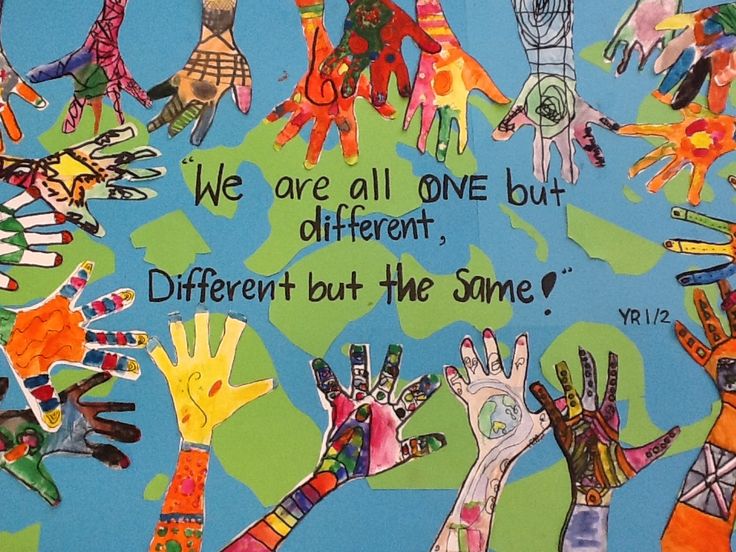 "We are all ONE but
different,
Different but the same!"
YR 1/2